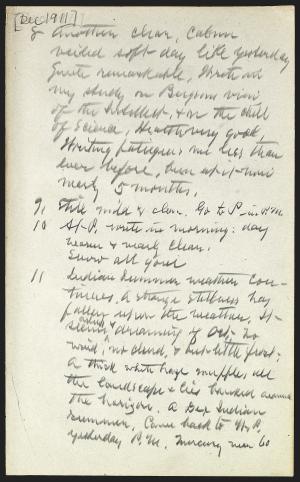 [Dec 1911]
8 Another clear, calm
veiled soft day like yesterday
Quite remarkable. Wrote in
my study on Bergson view
of the Intellect, & on the chill
of Science, Health very good,
Writing fatigues me less than
ever before, been at it now
nearly 5 months.
9, Still mild & clear. Go to P. in P.M.
10 At P. write in morning: day
warm & nearly clear.
Snow all gone
11 Indian Summer weather con-
tinues. A strange stillness has
fallen upon the weather. It
seems dreaming of Oct. No
wind, no cloud, & but little frost.
A thick white haze muffles all
the landscape & lies banked around
the horizon. A Dec Indian
Summer. Came back to W. P.
yesterday P.M. Mercury near 60